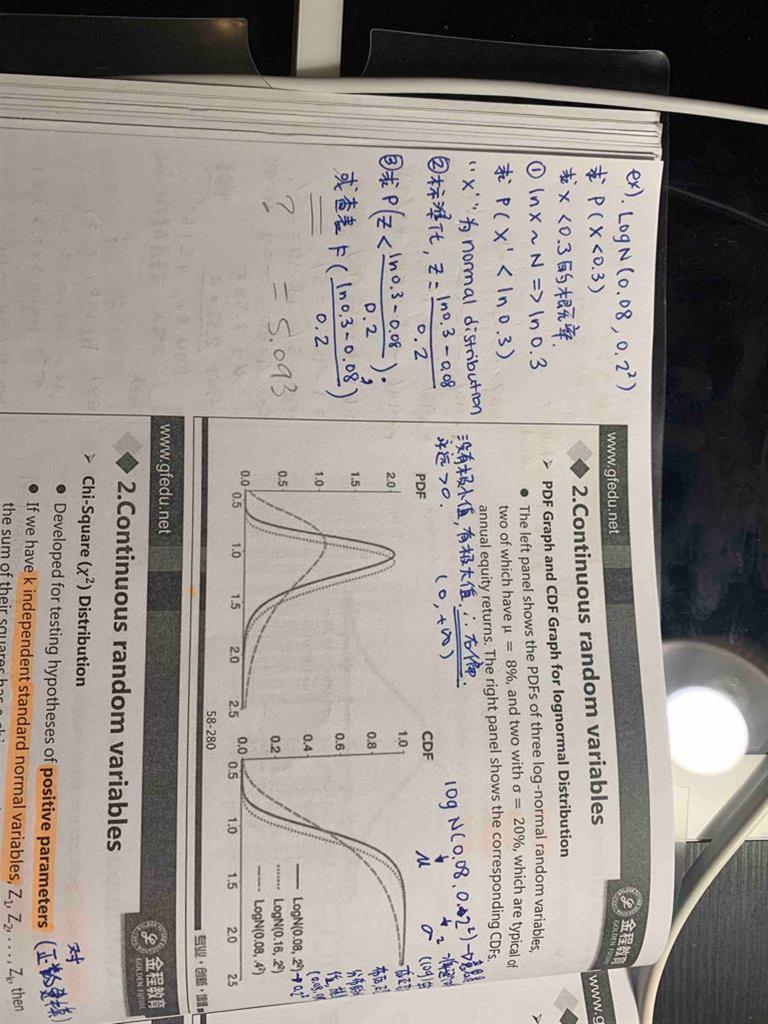 ex). LogN(0.08, 0.2²)
求 P(X<0.3)
求 X<0.3的概率.
① lnX~N => ln0.3
求 P(X'<ln0.3)
"X'"为normal distribution
②标准化, Z = (ln0.3-0.08)/0.2
③求P(Z < (ln0.3-0.08)/0.2);
或查表 F((ln0.3-0.08)/0.2)
? = 5.093
www.gfedu.net
金程教育
GOLDEN FUTURE
2.Continuous random variables
➢ PDF Graph and CDF Graph for lognormal Distribution
● The left panel shows the PDFs of three log-normal random variables,
two of which have μ = 8%, and two with σ = 20%, which are typical of
annual equity returns. The right panel shows the corresponding CDFs.
没有极小值,有极大值∴右偏.
永远>0. (0,+∞)
logN(0.08, 0.2²)
μ σ²
PDF
2.0
1.5
1.0
0.5
0.0
0.5 1.0 1.5 2.0 2.5
CDF
1.0
0.8
0.6
0.4
0.2
0.0
0.5 1.0 1.5 2.0 2.5
LogN(0.08, .2²)
LogN(0.16, .2²)
LogN(0.08, .4²)
58-280
专业·创新·增值
www.gfedu.net
金程教育
GOLDEN FUTURE
2.Continuous random variables
➢ Chi-Square (χ²) Distribution
● Developed for testing hypotheses of positive parameters
● If we have k independent standard normal variables, Z₁, Z₂, ..., Zₖ, then
www.g